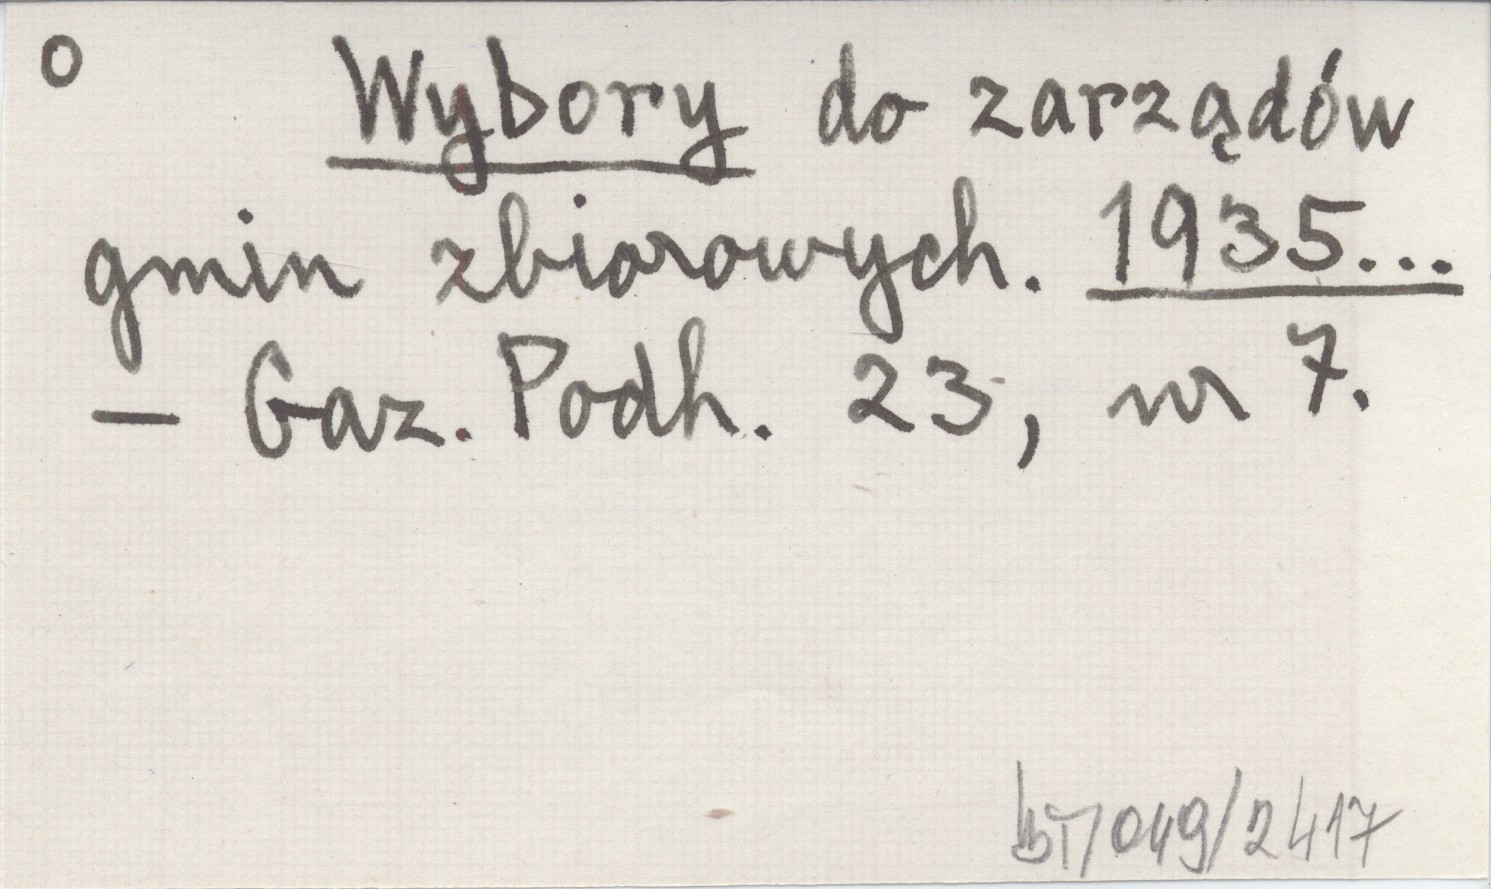 o Wybory do zarządów
gmin zbiorowych. 1935...
— Gaz. Podh. 23, nr 7.
/049/2417